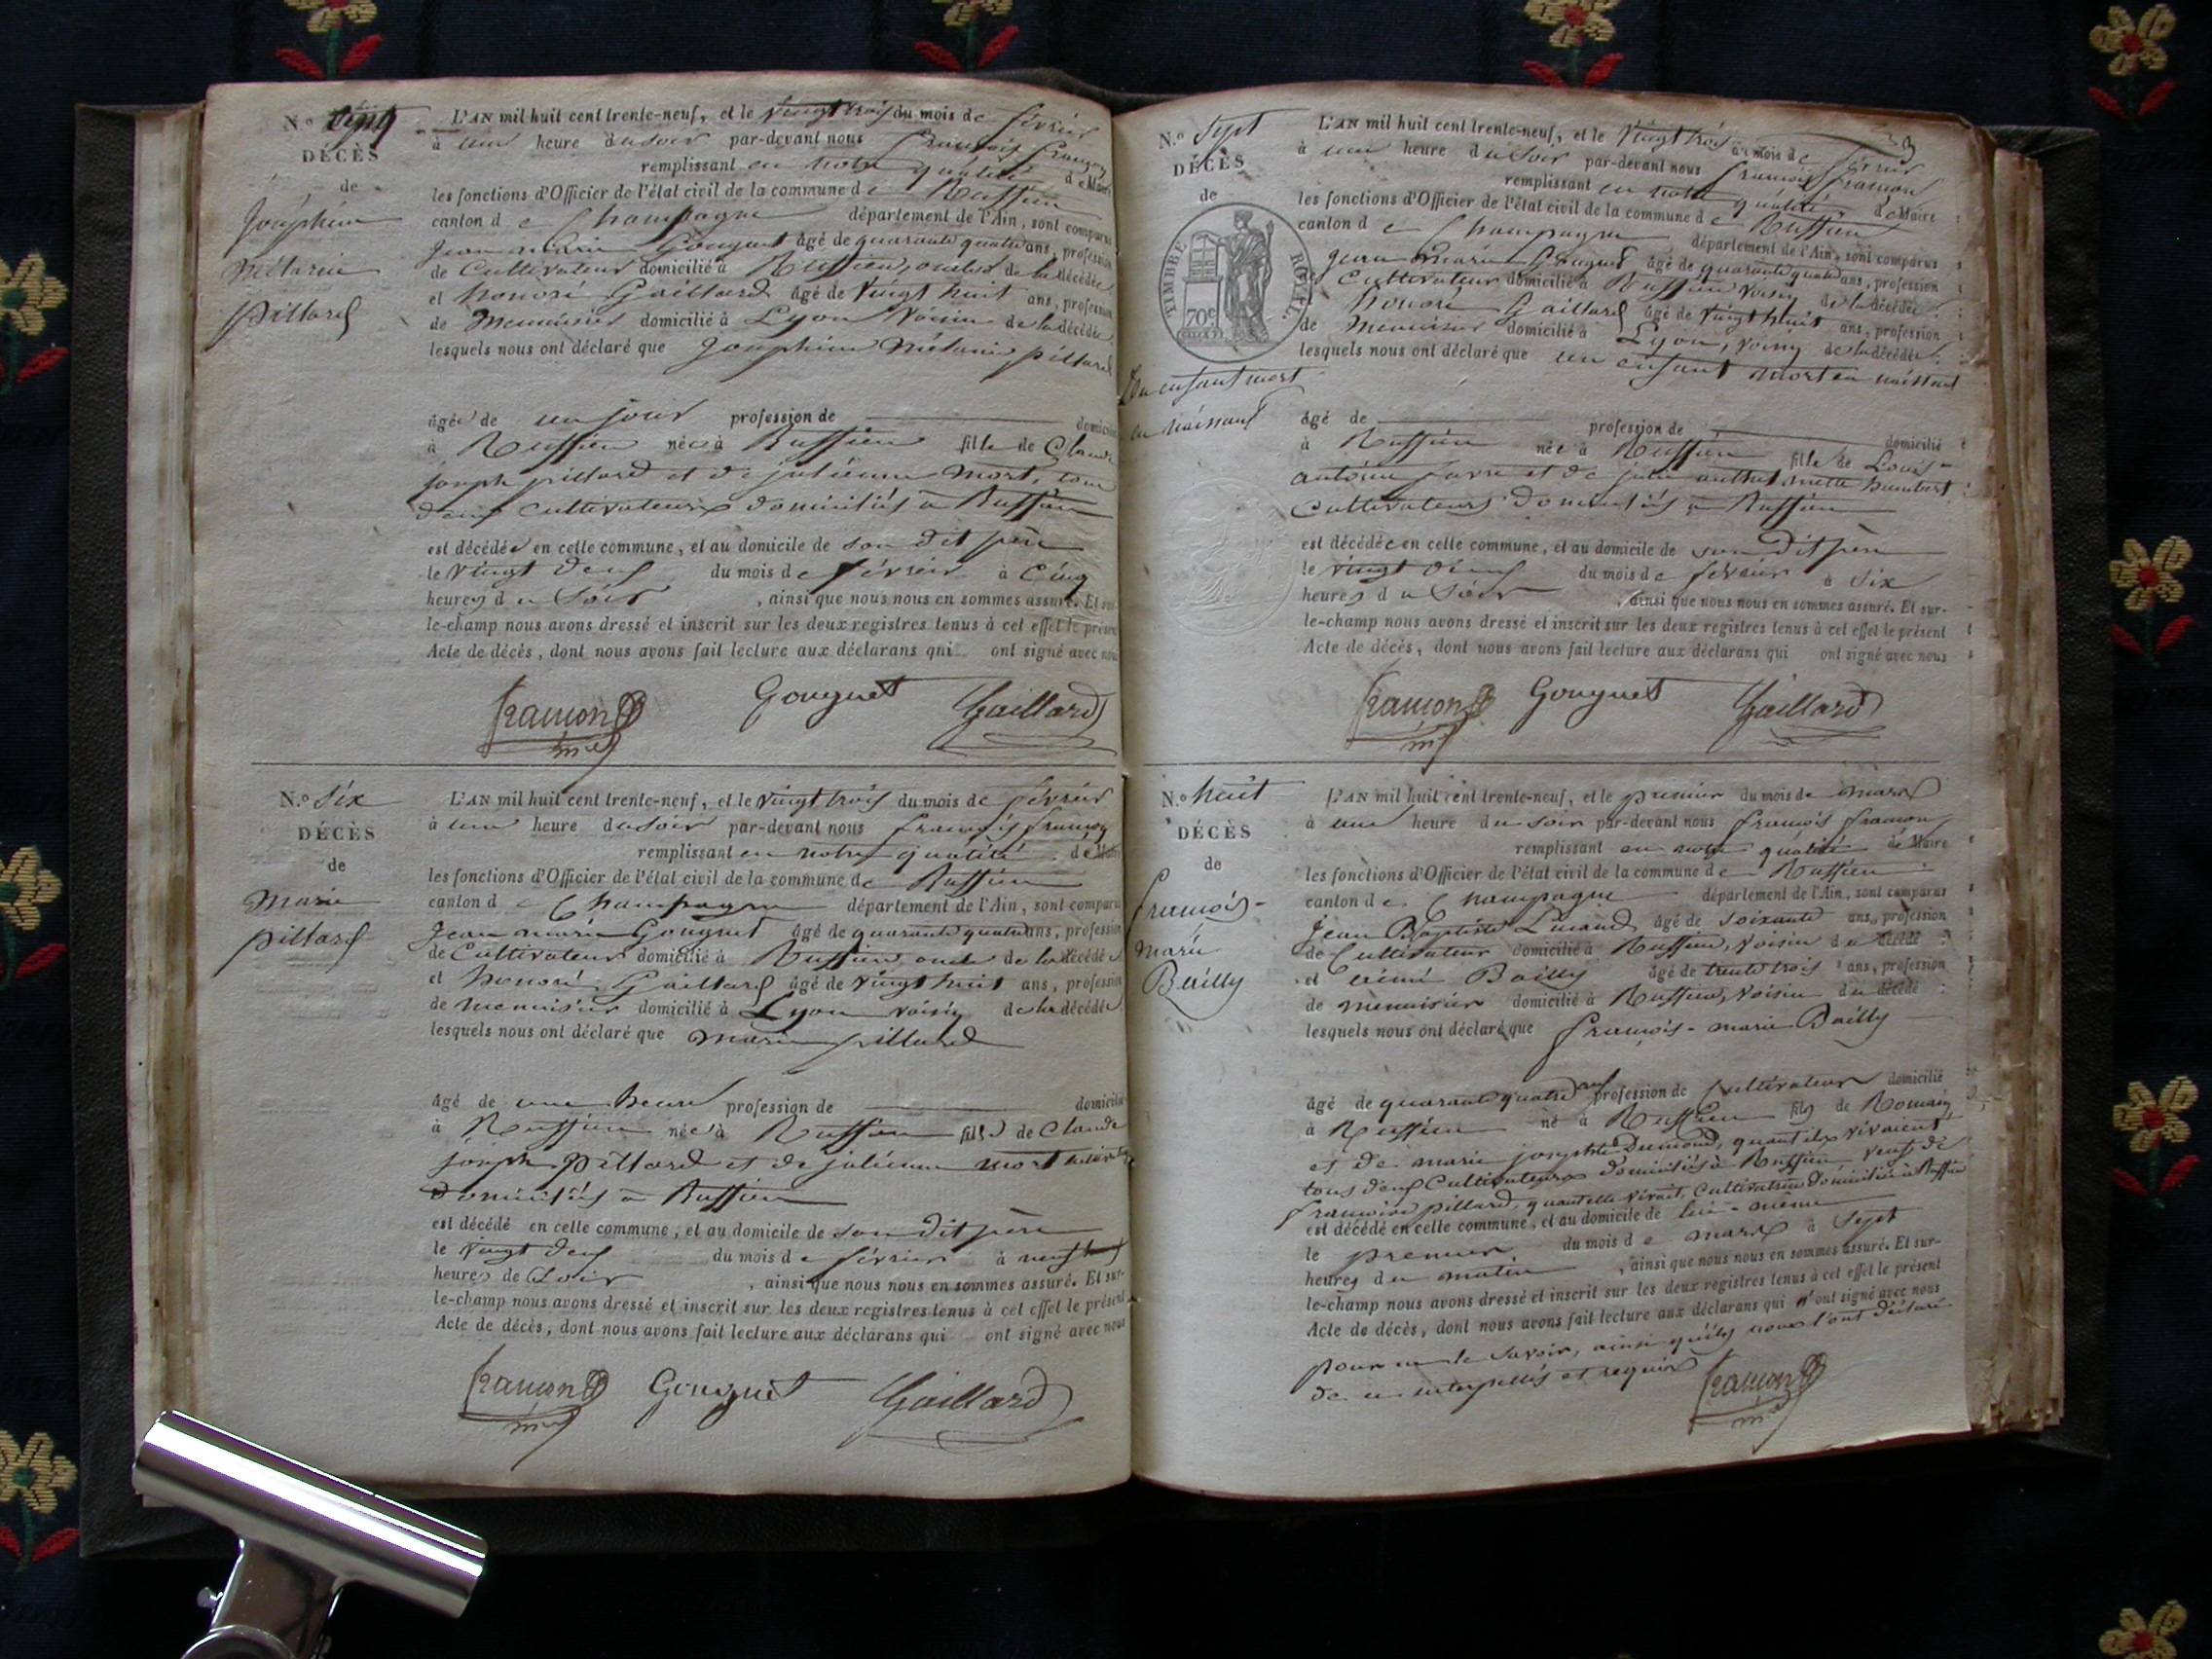 N.º
DÉCÈS
de
Joséphine
Mélanie
Pillard
L'AN mil huit cent trente-neuf, et le vingt trois du mois de février
à une heure du soir par-devant nous François Françon
remplissant en notre qualité de Maire
les fonctions d'Officier de l'état civil de la commune de Ruffieu
canton de Champagne département de l'Ain, sont comparus
Jean marie Gouguet âgé de quarante quatre ans, profession
de Cultivateur domicilié à Ruffieu, oncle de la décédée
et honoré Gaillard âgé de vingt huit ans, profession
de Menuisier domicilié à Lyon voisin de la décédée
lesquels nous ont déclaré que Joséphine Mélanie pillard
âgée de un jour profession de domicilié
à Ruffieu née à Ruffieu fille de Claude
joseph pillard et de julienne Mort, tous
deux Cultivateurs domiciliés à Ruffieu
est décédée en cette commune, et au domicile de son dit père
le vingt deux du mois de février à Cinq
heures du Soir, ainsi que nous nous en sommes assuré. Et sur-
le-champ nous avons dressé et inscrit sur les deux registres tenus à cet effet le présent
Acte de décès, dont nous avons fait lecture aux déclarans qui ont signé avec nous
Françon Gouguet Gaillard
N.º Six
DÉCÈS
de
Marie
pillard
L'AN mil huit cent trente-neuf, et le vingt trois du mois de février
à une heure du soir par-devant nous françois françon
remplissant en notre qualité de Maire
les fonctions d'Officier de l'état civil de la commune de Ruffieu
canton de Champagne département de l'Ain, sont comparus
Jean marie Gouguet âgé de quarante quatre ans, profession
de Cultivateur domicilié à Ruffieu, oncle de la décédée
et honoré Gaillard âgé de vingt huit ans, profession
de menuisier domicilié à Lyon voisin de la décédée
lesquels nous ont déclaré que marie pillard
âgé de une heure profession de domicilié
à Ruffieu née à Ruffieu fille de Claude
joseph Pillard et de julienne mort
domiciliés à Ruffieu
est décédé en cette commune, et au domicile de son dit père
le vingt deux du mois de février à neuf
heures de Soir, ainsi que nous nous en sommes assuré. Et sur-
le-champ nous avons dressé et inscrit sur les deux registres tenus à cet effet le présent
Acte de décès, dont nous avons fait lecture aux déclarans qui ont signé avec nous
Françon Gouguet Gaillard
3
N.º Sept
DÉCÈS
de
TIMBRE ROYAL
70c
Un enfant mort
en naissant
L'AN mil huit cent trente-neuf, et le vingt trois du mois de février
à une heure du Soir par-devant nous françois françon
remplissant en notre qualité de Maire
les fonctions d'Officier de l'état civil de la commune de Ruffieu
canton de Champagne département de l'Ain, sont comparus
Jean marie Gouguet âgé de quarante quatre ans, profession
Cultivateur domicilié à Ruffieu voisin de la décédée
honoré Gaillard âgé de vingt huit ans, profession
de menuisier domicilié à Lyon, voisin de la décédée
lesquels nous ont déclaré que un enfant mort en naissant
âgé de profession de domicilié
à Ruffieu née à Ruffieu fille de Louis-
antoine favre et de humbert
Cultivateurs domiciliés à Ruffieu
est décédée en cette commune, et au domicile de son dit père
le vingt deux du mois de février à Six
heures du Soir, ainsi que nous nous en sommes assuré. Et sur-
le-champ nous avons dressé et inscrit sur les deux registres tenus à cet effet le présent
Acte de décès, dont nous avons fait lecture aux déclarans qui ont signé avec nous
Françon Gouguet Gaillard
N.º huit
DÉCÈS
de
François-
Marie
Bailly
L'AN mil huit cent trente-neuf, et le premier du mois de mars
à une heure du soir par-devant nous françois françon
remplissant en notre qualité de Maire
les fonctions d'Officier de l'état civil de la commune de Ruffieu
canton de Champagne département de l'Ain, sont comparus
Jean Baptiste âgé de soixante ans, profession
de Cultivateur domicilié à Ruffieu, voisin du décédé
et Bailly âgé de trente trois ans, profession
de menuisier domicilié à Ruffieu, voisin du décédé
lesquels nous ont déclaré que françois-marie Bailly
âgé de quarante quatre ans profession de Cultivateur domicilié
à Ruffieu né à Ruffieu fils de Romain
et de marie josephte Dumond, quant ils vivaient
tous deux Cultivateurs domiciliés à Ruffieu veuf de
françoise pillard, quant elle vivait, Cultivatrice domiciliée à Ruffieu
est décédé en cette commune, et au domicile de lui-même
le premier du mois de mars à Sept
heures du matin, ainsi que nous nous en sommes assuré. Et sur-
le-champ nous avons dressé et inscrit sur les deux registres tenus à cet effet le présent
Acte de décès, dont nous avons fait lecture aux déclarans qui n'ont signé avec nous
pour ne le savoir, ainsi qu'ils nous l'ont déclaré
de ce interpellés et requis
Françon